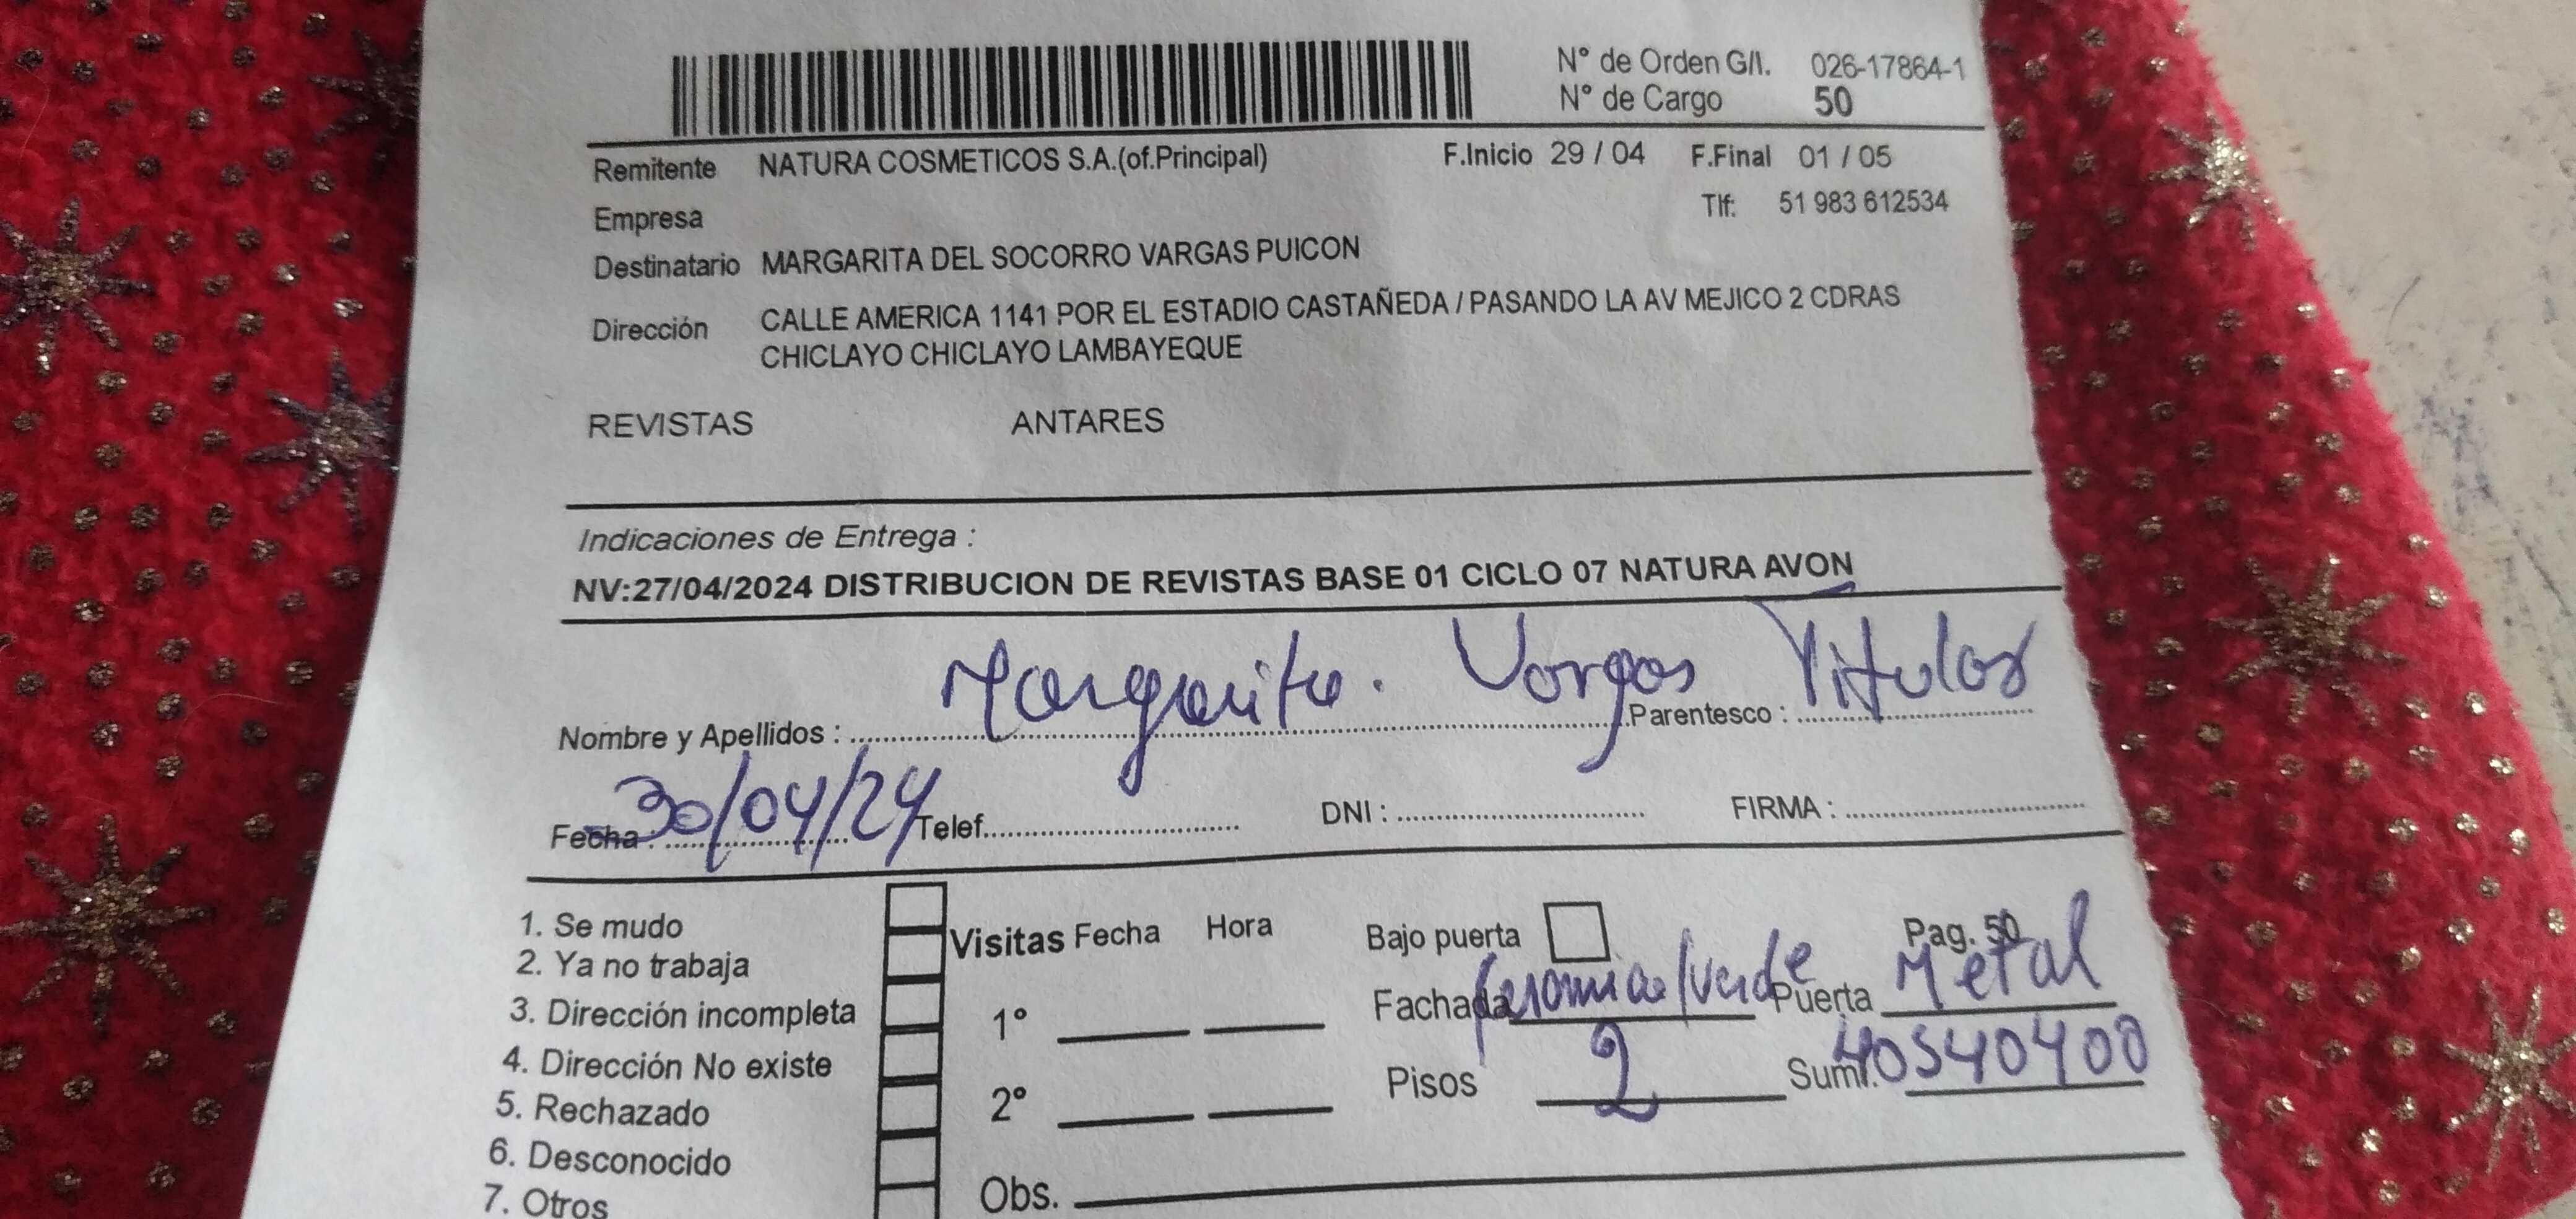 N° de Orden G/I. 026-17864-1
N° de Cargo 50
Remitente NATURA COSMETICOS S.A.(of.Principal) F.Inicio 29 / 04 F.Final 01 / 05
Empresa Tlf: 51 983 612534
Destinatario MARGARITA DEL SOCORRO VARGAS PUICON
Dirección CALLE AMERICA 1141 POR EL ESTADIO CASTAÑEDA / PASANDO LA AV MEJICO 2 CDRAS
CHICLAYO CHICLAYO LAMBAYEQUE
REVISTAS ANTARES
Indicaciones de Entrega :
NV:27/04/2024 DISTRIBUCION DE REVISTAS BASE 01 CICLO 07 NATURA AVON
Nombre y Apellidos : Margarita. Vargas Parentesco : Titular
Fecha : 30/04/24 Telef. DNI : FIRMA :
1. Se mudo
2. Ya no trabaja
3. Dirección incompleta
4. Dirección No existe
5. Rechazado
6. Desconocido
7. Otros
Visitas Fecha Hora
1°
2°
Bajo puerta Pag. 50
Fachada verde Puerta Metal
Pisos 2 Sumr. 40540400
Obs.